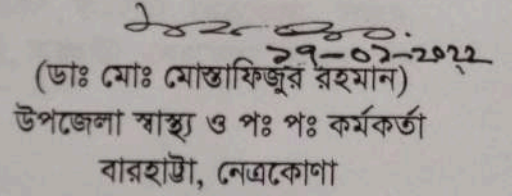 ২৭-০২-২০২২
(ডাঃ মোঃ মোস্তাফিজুর রহমান)
উপজেলা স্বাস্থ্য ও পঃ পঃ কর্মকর্তা
বারহাট্টা, নেত্রকোণা